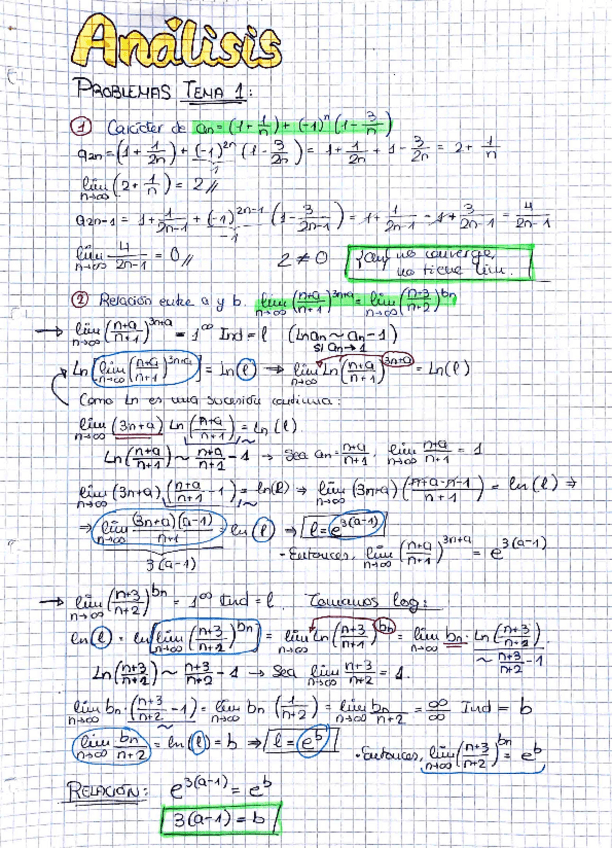 Análisis
PROBLEMAS TEMA 1:
① Carácter de an = (1 + 1/n) + (-1)^n (1 - 3/n)
a2n = (1 + 1/2n) + (-1)^2n (1 - 3/2n) = 1 + 1/2n + 1 - 3/2n = 2 + 1/n
1
lim n→∞ (2 + 1/n) = 2//
a2n-1 = 1 + 1/2n-1 + (-1)^2n-1 (1 - 3/2n-1) = 1 + 1/2n-1 - 1 + 3/2n-1 = 4/2n-1
-1
lim n→∞ 4/2n-1 = 0// 2 ≠ 0 {an} no converge, no tiene lim.
② Relación entre a y b. lim n→∞ (n+a/n+1)^3n+a = lim n→∞ (n+3/n+2)^bn
→ lim n→∞ (n+a/n+1)^3n+a = 1^∞ Ind = l (Ln an ~ an - 1)
si an → 1
Ln [lim n→∞ (n+a/n+1)^3n+a] = Ln(l) → lim n→∞ Ln (n+a/n+1)^3n+a = Ln(l)
Como Ln es una sucesión continua:
lim n→∞ (3n+a) Ln (n+a/n+1) = Ln(l)
Ln(n+a/n+1) ~ n+a/n+1 - 1 → Sea an = n+a/n+1, lim n→∞ n+a/n+1 = 1
lim n→∞ (3n+a) (n+a/n+1 - 1) = ln(l) ⇒ lim n→∞ (3n+a) (n+a-n-1/n+1) = ln(l) ⇒
⇒ lim n→∞ (3n+a)(a-1)/n+1 = ln(l) ⇒ l = e^3(a-1)
3(a-1)
- Entonces, lim n→∞ (n+a/n+1)^3n+a = e^3(a-1)
→ lim n→∞ (n+3/n+2)^bn = 1^∞ Ind = l. Tomamos log:
ln(l) = ln [lim n→∞ (n+3/n+2)^bn] = lim n→∞ ln (n+3/n+1)^bn = lim n→∞ bn · Ln (n+3/n+2)
~ n+3/n+2 - 1
Ln(n+3/n+2) ~ n+3/n+2 - 1 → Sea lim n→∞ n+3/n+2 = 1.
lim n→∞ bn · (n+3/n+2 - 1) = lim n→∞ bn (1/n+2) = lim n→∞ bn/n+2 = ∞/∞ Ind = b
lim n→∞ bn/n+2 = ln(l) = b ⇒ l = e^b
· Entonces, lim n→∞ (n+3/n+2)^bn = e^b
RELACIÓN: e^3(a-1) = e^b
3(a-1) = b